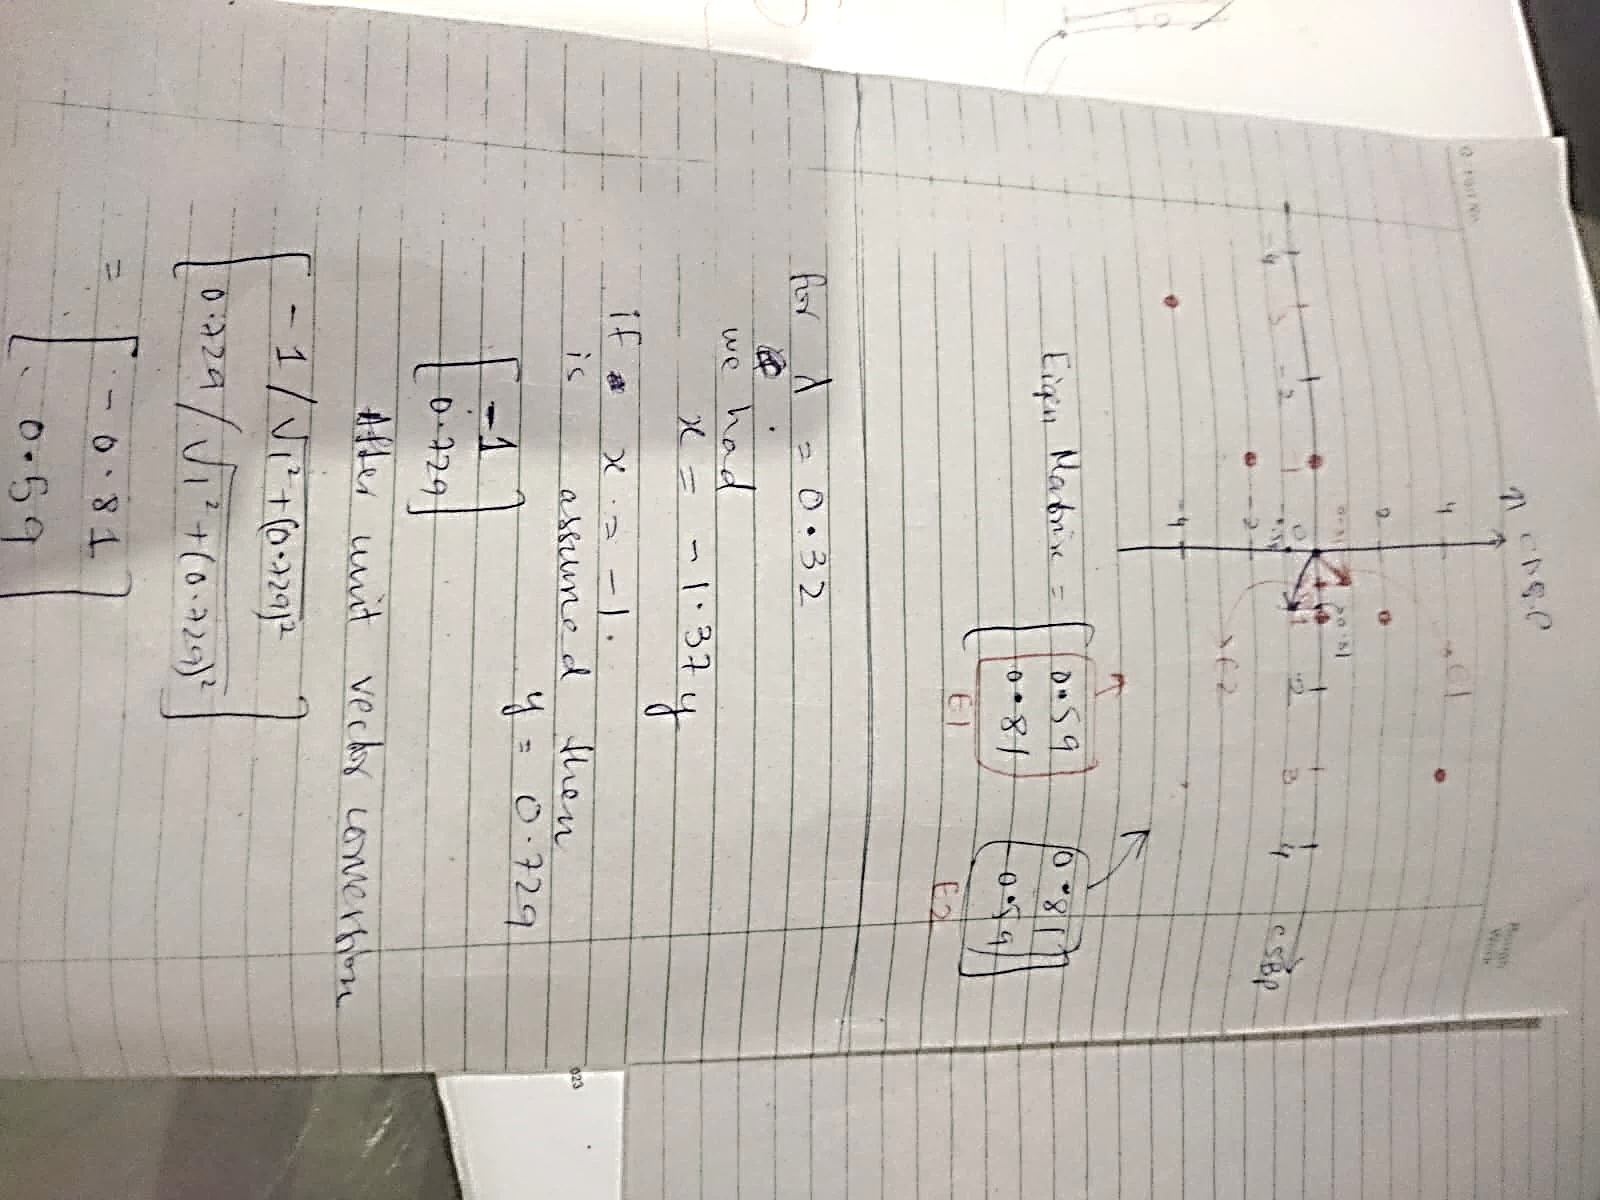 CDBP
4
E1
2
0.81
(0.59,0.81)
-4 -3 -2 -1 0 1 2 3 4
CSBP
-2
E2
-4
Eigen Matrix = [0.59 0.81
0.81 -0.59]
E1 E2
for λ = 0.32
we had
x = -1.37y
if x = -1.
is assumed then
y = 0.729
[-1
0.729]
After unit vector conversion
[-1/√1²+(0.729)²
0.729/√1²+(0.729)²]
= [-0.81
0.59]
023